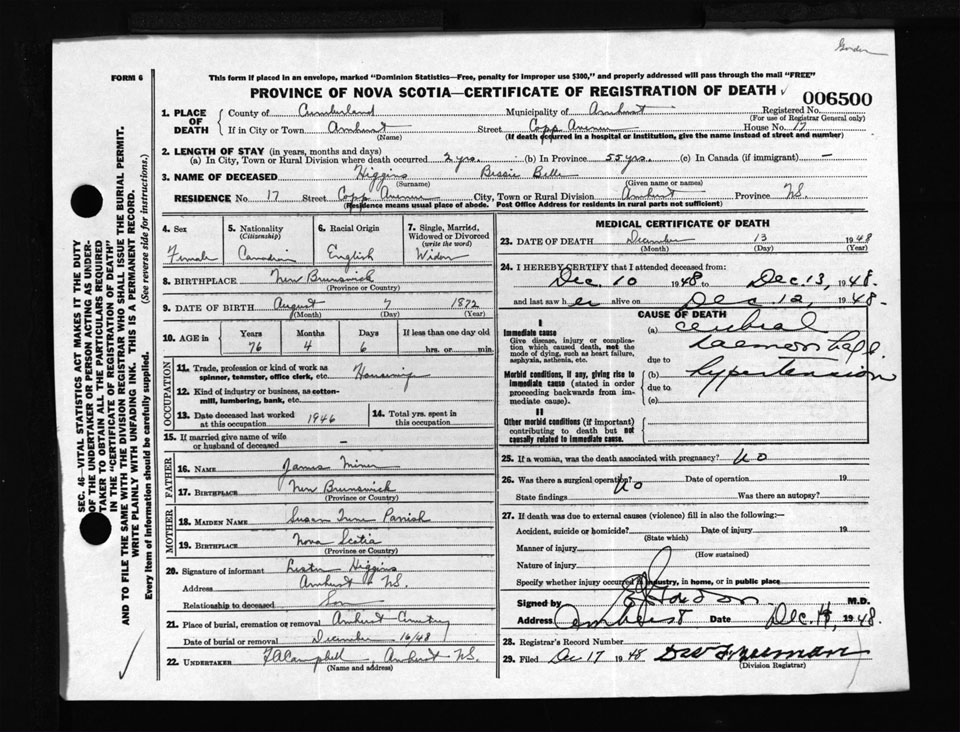 Gordon
FORM 6
This form if placed in an envelope, marked "Dominion Statistics—Free, penalty for improper use $300," and properly addressed will pass through the mail "FREE"
PROVINCE OF NOVA SCOTIA—CERTIFICATE OF REGISTRATION OF DEATH
006500
1. PLACE OF DEATH
County of Cumberland Municipality of Amherst Registered No.
(For use of Registrar General only)
If in City or Town Amherst Street Copp Avenue House No. 17
(Name) (If death occurred in a hospital or institution, give the name instead of street and number)
2. LENGTH OF STAY (in years, months and days)
(a) In City, Town or Rural Division where death occurred 2 yrs. (b) In Province 55 yrs. (c) In Canada (if immigrant) —
3. NAME OF DECEASED Higgins Bessie Belle
(Surname) (Given name or names)
RESIDENCE No. 17 Street Copp Avenue City, Town or Rural Division Amherst Province NS.
(Residence means usual place of abode. Post Office Address for residents in rural parts not sufficient)
4. Sex
Female
5. Nationality
(Citizenship)
Canadian
6. Racial Origin
English
7. Single, Married, Widowed or Divorced
(write the word)
Widow
8. BIRTHPLACE New Brunswick
(Province or Country)
9. DATE OF BIRTH August 7 1872
(Month) (Day) (Year)
10. AGE in Years Months Days If less than one day old
76 4 6 hrs. or min.
OCCUPATION
11. Trade, profession or kind of work as
spinner, teamster, office clerk, etc. Housewife
12. Kind of industry or business, as cotton-
mill, lumbering, bank, etc.
13. Date deceased last worked
at this occupation 1946
14. Total yrs. spent in
this occupation
15. If married give name of wife
or husband of deceased —
FATHER
16. NAME James Miner
17. BIRTHPLACE New Brunswick
(Province or Country)
MOTHER
18. MAIDEN NAME Susan Parrish
19. BIRTHPLACE Nova Scotia
(Province or Country)
20. Signature of informant Lester Higgins
Address Amherst NS.
Relationship to deceased Son
21. Place of burial, cremation or removal Amherst Cemetery
Date of burial or removal December 16/48
22. UNDERTAKER FA Campbell, Amherst NS.
(Name and address)
MEDICAL CERTIFICATE OF DEATH
23. DATE OF DEATH December 13 1948
(Month) (Day) (Year)
24. I HEREBY CERTIFY that I attended deceased from:
Dec. 10 1948 to Dec. 13, 1948.
and last saw her alive on Dec. 12, 1948.
CAUSE OF DEATH
I
Immediate cause
Give disease, injury or complication
which caused death, not the
mode of dying, such as heart failure,
asphyxia, asthenia, etc.
(a) cerebral
due to
Morbid conditions, if any, giving rise to
immediate cause (stated in order
proceeding backwards from immediate
cause).
(b) hypertension
due to
(c)
II
Other morbid conditions (if important)
contributing to death but not
causally related to immediate cause.
25. If a woman, was the death associated with pregnancy? No
26. Was there a surgical operation? No Date of operation 19
State findings Was there an autopsy?
27. If death was due to external causes (violence) fill in also the following:—
Accident, suicide or homicide? Date of injury 19
(State which)
Manner of injury
(How sustained)
Nature of injury
Specify whether injury occurred in industry, in home, or in public place
Signed by Gordon M.D.
Address Amherst Date Dec. 1948.
28. Registrar's Record Number
29. Filed Dec 17 1948 Freeman
(Division Registrar)
SEC. 46—VITAL STATISTICS ACT MAKES IT THE DUTY
OF THE UNDERTAKER OR PERSON ACTING AS UNDER-
TAKER TO OBTAIN ALL THE PARTICULARS REQUIRED
IN THE "CERTIFICATE OF REGISTRATION OF DEATH"
AND TO FILE THE SAME WITH THE DIVISION REGISTRAR WHO SHALL ISSUE THE BURIAL PERMIT.
WRITE PLAINLY WITH UNFADING INK. THIS IS A PERMANENT RECORD.
Every item of information should be carefully supplied. (See reverse side for instructions.)